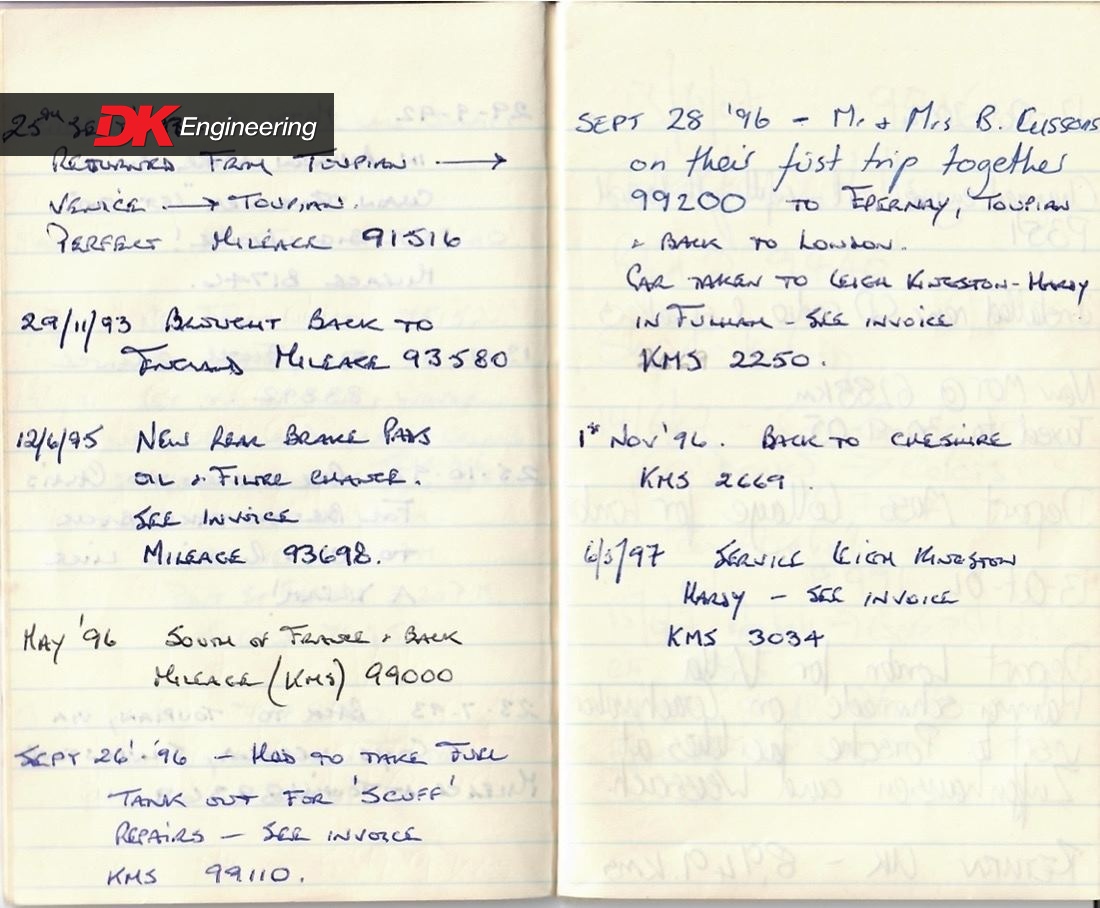 25th SEPT
DK Engineering
RETURNED FROM TOUPIAN →
VENICE → TOUPIAN.
PERFECT MILEAGE 91516
29/11/93 BROUGHT BACK TO
ENGLAND MILEAGE 93580
12/6/95 NEW REAR BRAKE PADS
OIL & FILTRE CHANGE.
SEE INVOICE
MILEAGE 93698.
MAY '96 SOUTH OF FRANCE & BACK
MILEAGE (KMS) 99000
SEPT 26' '96 - HAD TO TAKE FUEL
TANK OUT FOR 'SCUFF'
REPAIRS - SEE INVOICE
KMS 99110.
SEPT 28 '96 - Mr & Mrs B. Cussons
on their first trip together
99200 TO EPERNAY, TOUPIAN
& BACK TO LONDON.
CAR TAKEN TO LEIGH KINGSTON-HARDY
IN FULHAM - SEE INVOICE
KMS 2250.
1st NOV '96. BACK TO CHESHIRE
KMS 2669.
6/3/97 SERVICE LEIGH KINGSTON
HARDY - SEE INVOICE
KMS 3034